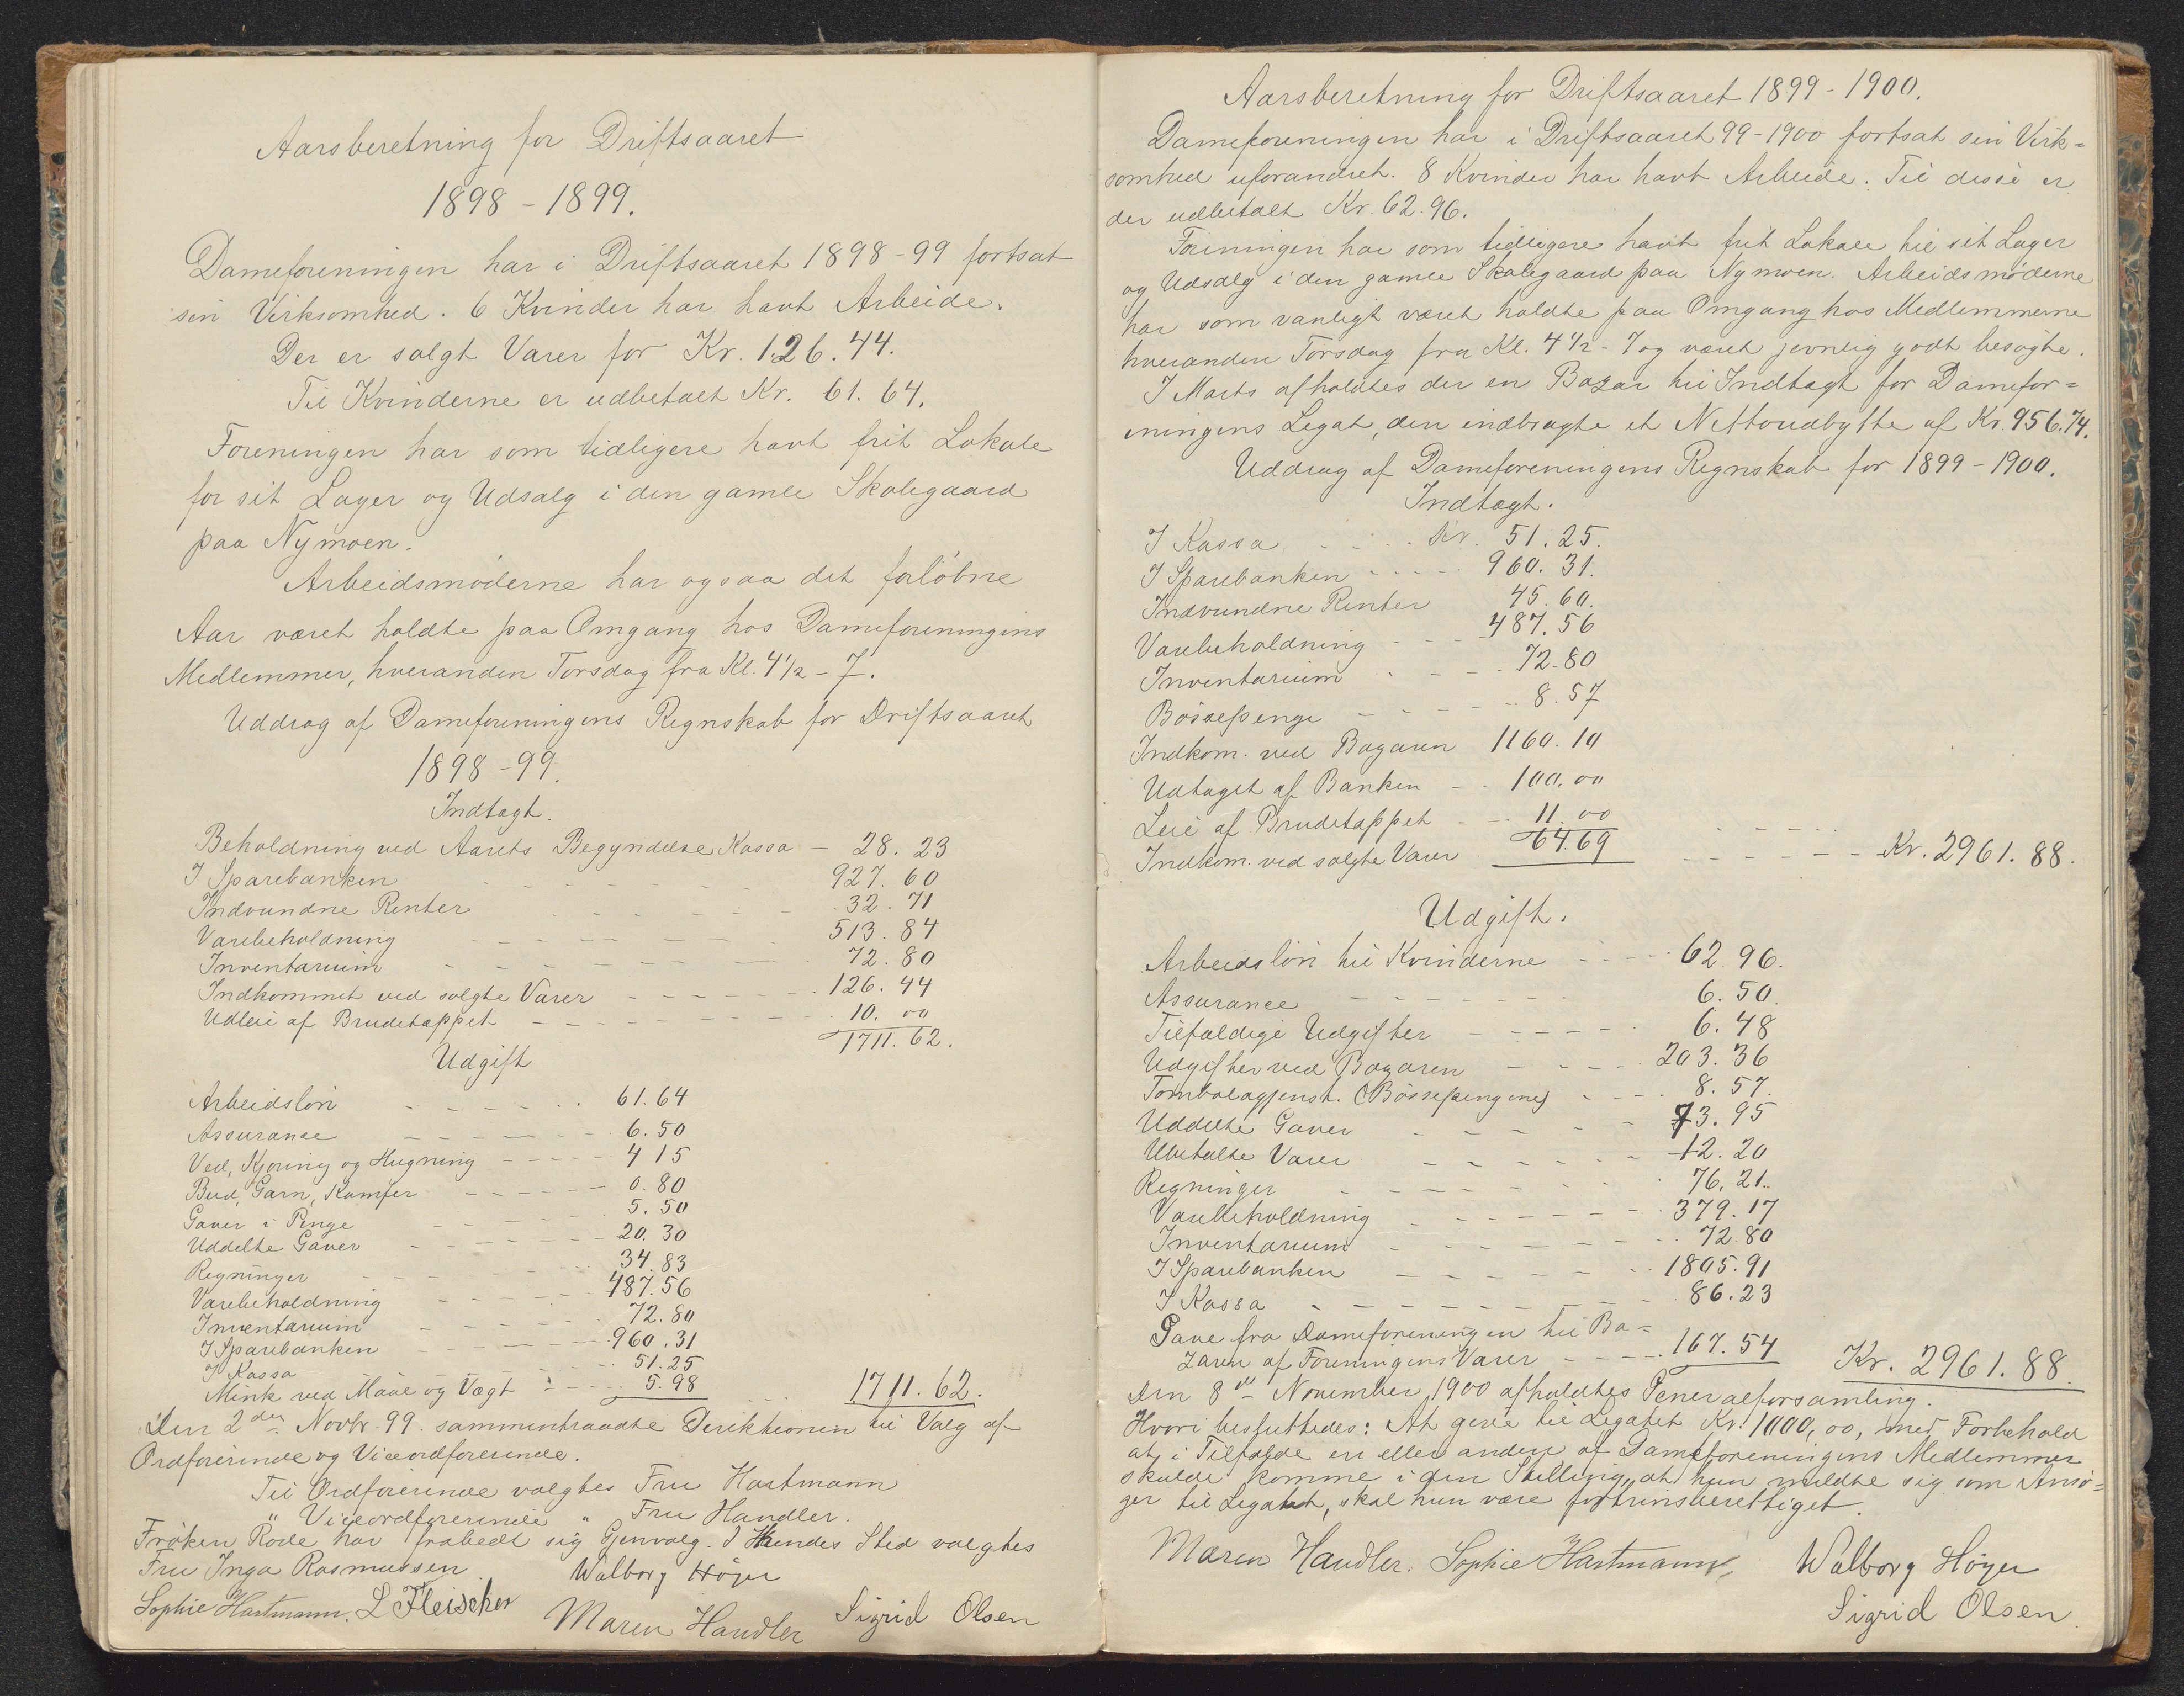 Aarsberetning for Driftsaaret
1898 - 1899.
Dameforeningen har i Driftsaaret 1898-99 fortsat
sin Virksomhed. 6 Kvinder har havt Arbeide.
Der er solgt Varer for Kr. 126.44.
Til Kvinderne er udbetalt Kr. 61.64.
Foreningen har som tidligere havt frit Lokale
for sit Lager og Udsalg i den gamle Skolegaard
paa Nymoen.
Arbeidsmøderne har ogsaa det forløbne
Aar været holdte paa Omgang hos Dameforeningens
Medlemmer, hveranden Torsdag fra Kl. 4 1/2 - 7.
Uddrag af Dameforeningens Regnskab for Driftsaaret
1898-99.
Indtægt.
Beholdning ved Aarets Begyndelse Kassa - 28. 23
I Sparebanken 927. 60
Indvundne Renter 32. 71
Varebeholdning 513. 84
Inventarium 72. 80
Indkommet ved solgte Varer 126. 44
Udleie af Brudetæppet 10. 00
1711. 62.
Udgift
Arbeidsløn 61.64
Assurance 6.50
Ved, Kjøring og Hugning 4 15
Bud, Garn, Kamfer 0.80
Gaver i Penge 5.50
Uddelte Gaver 20.30
Regninger 34.83
Varebeholdning 487.56
Inventarium 72.80
I Sparebanken 960.31
I Kassa 51.25
Mink ved Maal og Vægt 5.98 1711.62.
Den 2den Novbr. 99. sammentraadte Direktionen til Valg af
Ordførerinde og Viceordførerinde.
Til Ordførerinde valgtes Fru Hartmann
" Viceordførerinde " Fru Handler.
Frøken Rode har frabedt sig Gjenvalg. I Hendes Sted valgtes
Fru Inga Rasmussen. Walborg Høyer
Sophie Hartmann. L Fleischer Maren Handler Sigrid Olsen
Aarsberetning for Driftsaaret 1899-1900.
Dameforeningen har i Driftsaaret 99-1900 fortsat sin Virk=
somhed uforandret. 8 Kvinder har havt Arbeide. Til disse er
der udbetalt Kr. 62.96.
Foreningen har som tidligere havt frit Lokale til sit Lager
og Udsalg i den gamle Skolegaard paa Nymoen. Arbeidsmøderne
har som vanligt været holdte paa Omgang hos Medlemmerne
hveranden Torsdag fra Kl. 4 1/2 - 7 og været jevnlig godt besøgte.
I Marts afholdtes der en Bazar til Indtægt for Damefor=
eningens Legat, den indbragte et Nettoudbytte af Kr. 956.74.
Uddrag af Dameforeningens Regnskab for 1899-1900.
Indtægt.
I Kassa Kr. 51.25.
I Sparebanken 960.31.
Indvundne Renter 45.60.
Varebeholdning 487.56
Inventarium 72.80
Bøssepenge 8.57
Indkom. ved Bazaren 1160.10
Udtaget af Banken 100.00
Leie af Brudetæppet 11.00
Indkom. ved solgte Varer 64.69 Kr. 2961.88.
Udgift.
Arbeidsløn til Kvinderne 62.96.
Assurance 6.50.
Tilfældige Udgifter 6.48
Udgifter ved Bazaren 203.36
Tombolagjenst. (Bøssepengene) 8.57.
Uddelte Gaver 73.95
Ubetalte Varer 12.20
Regninger 76.21.
Varebeholdning 379.17
Inventarium 72.80
I Sparebanken 1805.91
I Kassa 86.23
Gave fra Dameforeningen til Ba=
zaren af Foreningens Varer 167.54 Kr. 2961.88.
Den 8de November 1900 afholdtes Generalforsamling.
Hvori besluttedes: At give til Legatet Kr. 1000,00, med Forbehold
at, i Tilfælde en eller anden af Dameforeningens Medlemmer
skulde komme i den Stilling, at hun meldte sig som Ansø=
ger til Legatet, skal hun være fortrinsberettiget.
Maren Handler. Sophie Hartmann, Walborg Høyer
Sigrid Olsen.